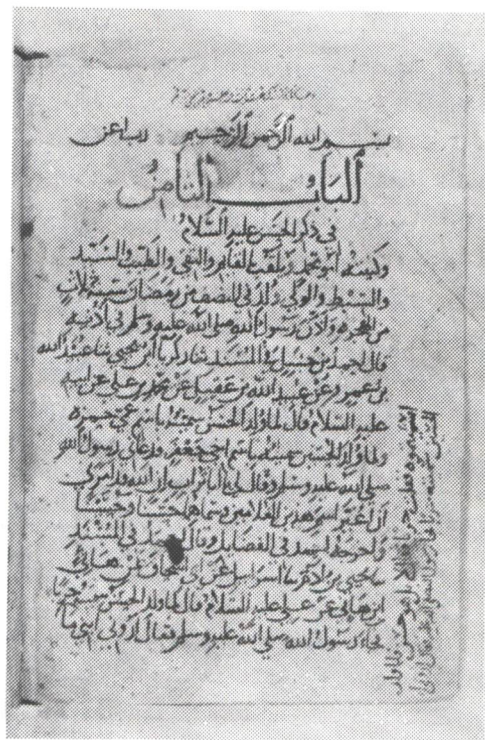 بسم الله الرحمن الرحيم رب اعن
الباب الثامن
في ذكر الحسن عليه السلام
وكنيته ابو محمد ويلقب القايم والتقي والطيب والسيد
والسبط والولي ولد في النصف من رمضان سنة ثلاث
من الهجرة واذن رسول الله صلى الله عليه وسلم في اذنيه
قال احمد بن حنبل في المسند ثنا زكريا بن يحيى ثنا عبيد الله
بن عمرو عن عبد الله بن عقيل عن محمد بن علي عن ابيه
عليه السلام قال لما ولد الحسن سميته باسم عمي حمزة
ولما ولد الحسين سميته باسم اخي جعفر فدعاني رسول الله
صلى الله عليه وسلم وقال لي ابا تراب ان الله قد امرني
ان اغير اسم هذين الغلامين وسماهما حسنا وحسينا
واخرجه احمد في الفضايل وقال احمد في المسند
ثنا يحيى بن ادم ثنا اسرايل عن ابي اسحاق عن هاني
ابن هاني عن علي عليه السلام قال لما ولد الحسن سميته حربا
فجاء رسول الله صلى الله عليه وسلم فقال اروني ابني ما